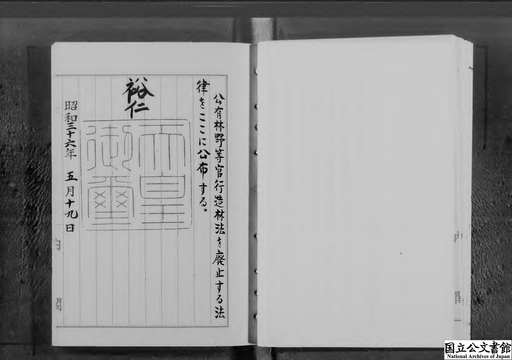 公有林野等官行造林法を廃止する法
律をここに公布する。
裕仁
天皇
御璽
昭和三十六年 五月十九日
国立公文書館
National Archives of Japan